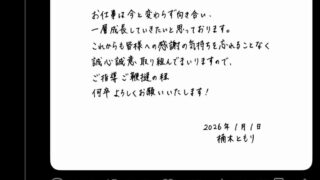 お仕事は今と変わらず向き合い、
一層成長していきたいと思っております。
これからも皆様への感謝の気持ちを忘れることなく
誠心誠意 取り組んでまいりますので、
ご指導 ご鞭撻の程
何卒 よろしくお願いいたします!
2026年1月1日
楠木ともり